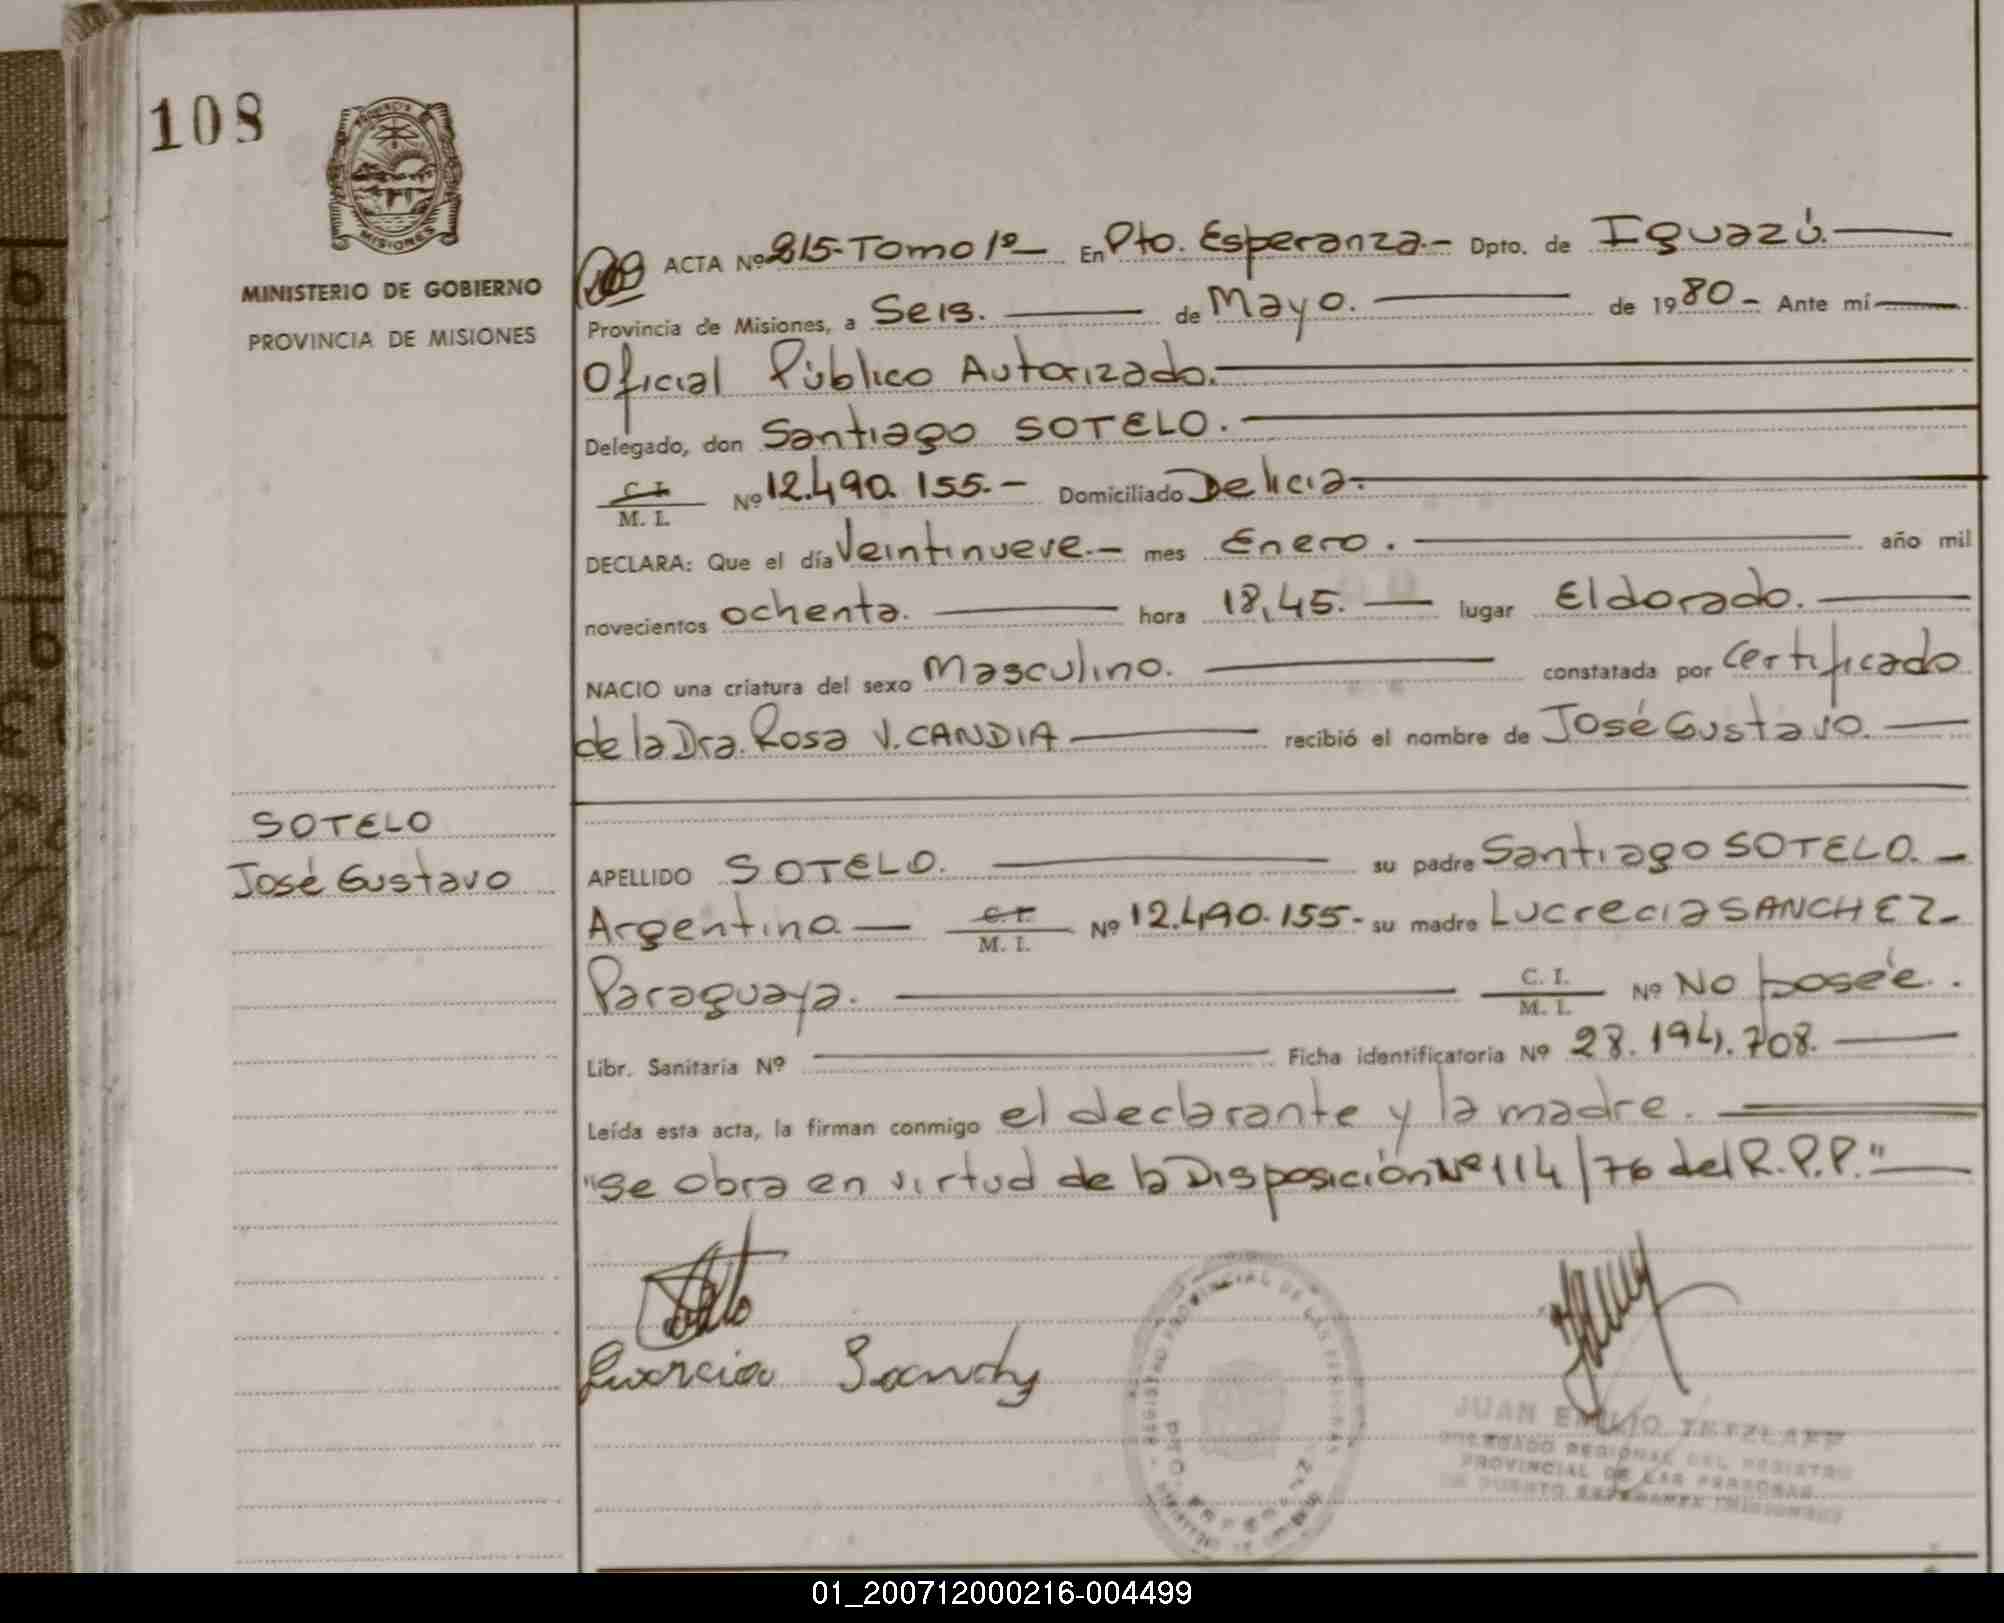 108
MISIONES
MINISTERIO DE GOBIERNO
PROVINCIA DE MISIONES
ACTA Nº 215-Tomo 1º En Pto. Esperanza.- Dpto. de Iguazú.
Provincia de Misiones, a Seis. de Mayo. de 1980- Ante mí
Oficial Público Autorizado.
Delegado, don Santiago SOTELO.
C. I.
M. I. Nº 12.490.155.- Domiciliado Delicia.
DECLARA: Que el día Veintinueve.- mes Enero. año mil
novecientos ochenta. hora 18,45. lugar Eldorado.
NACIO una criatura del sexo Masculino. constatada por Certificado
de la Dra. Rosa V. CANDIA recibió el nombre de José Gustavo.
SOTELO
José Gustavo
APELLIDO SOTELO. su padre Santiago SOTELO.-
Argentino C. I.
M. I. Nº 12.490.155- su madre Lucrecia SANCHEZ-
Paraguaya. C. I.
M. I. Nº No posée.
Libr. Sanitaria Nº Ficha identificatoria Nº 28.194.708.
Leída esta acta, la firman conmigo el declarante y la madre.
"Se obra en virtud de la Disposición Nº 114/76 del R.P.P."
REGISTRO PROVINCIAL DE LAS PERSONAS
JUAN EMILIO TETZLAFF
DELEGADO REGIONAL DEL REGISTRO
PROVINCIAL DE LAS PERSONAS
DE PUERTO ESPERANZA (MISIONES)
01_200712000216-004499